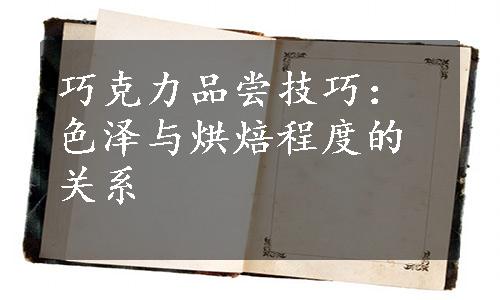 巧克力品尝技巧：
色泽与烘焙程度的
关系